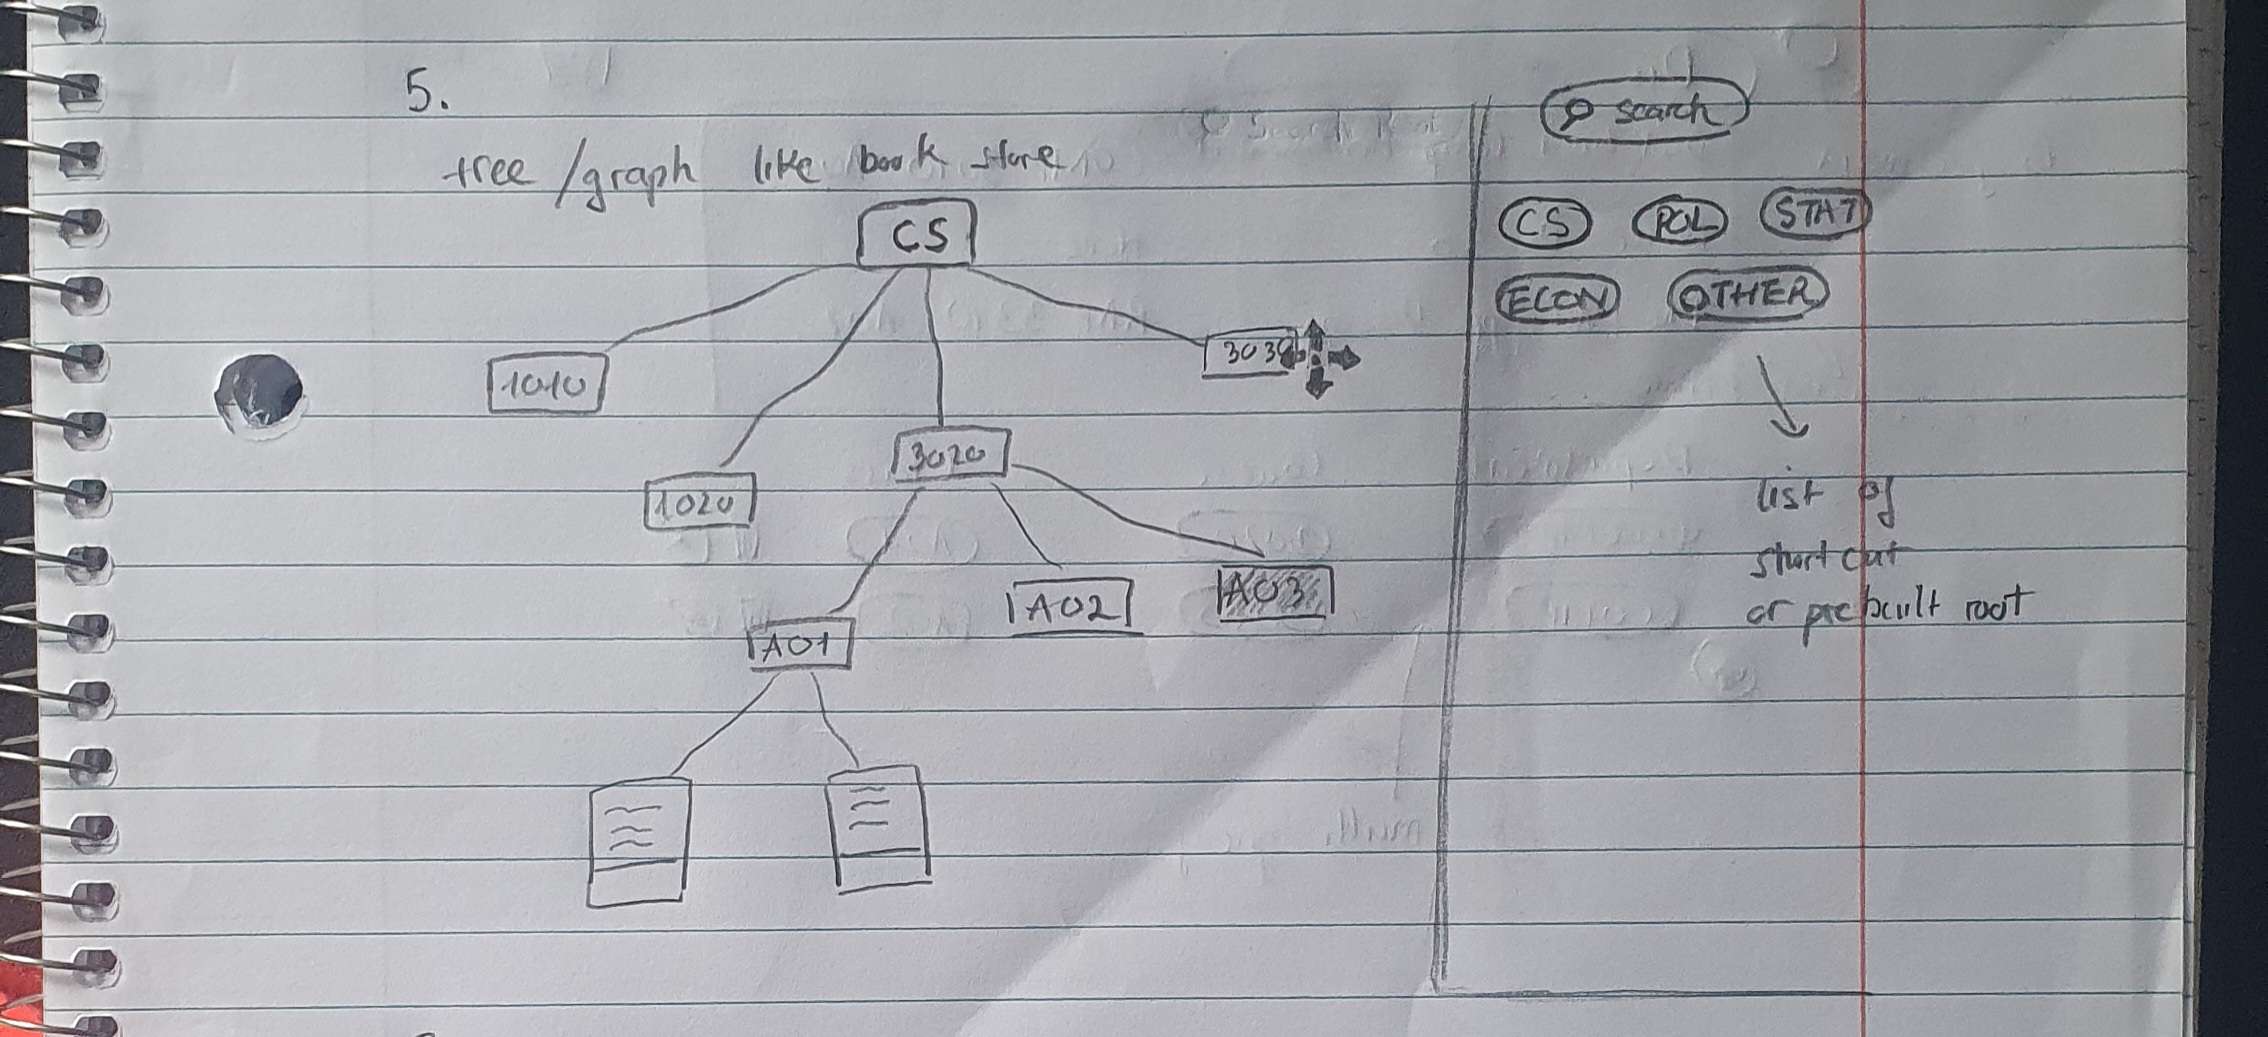 5.
tree/graph like book store
CS
1010
1020
3020
3030
A01
A02
A03
search
CS POL STAT
ECON OTHER
list of
short cut
or prebuilt root